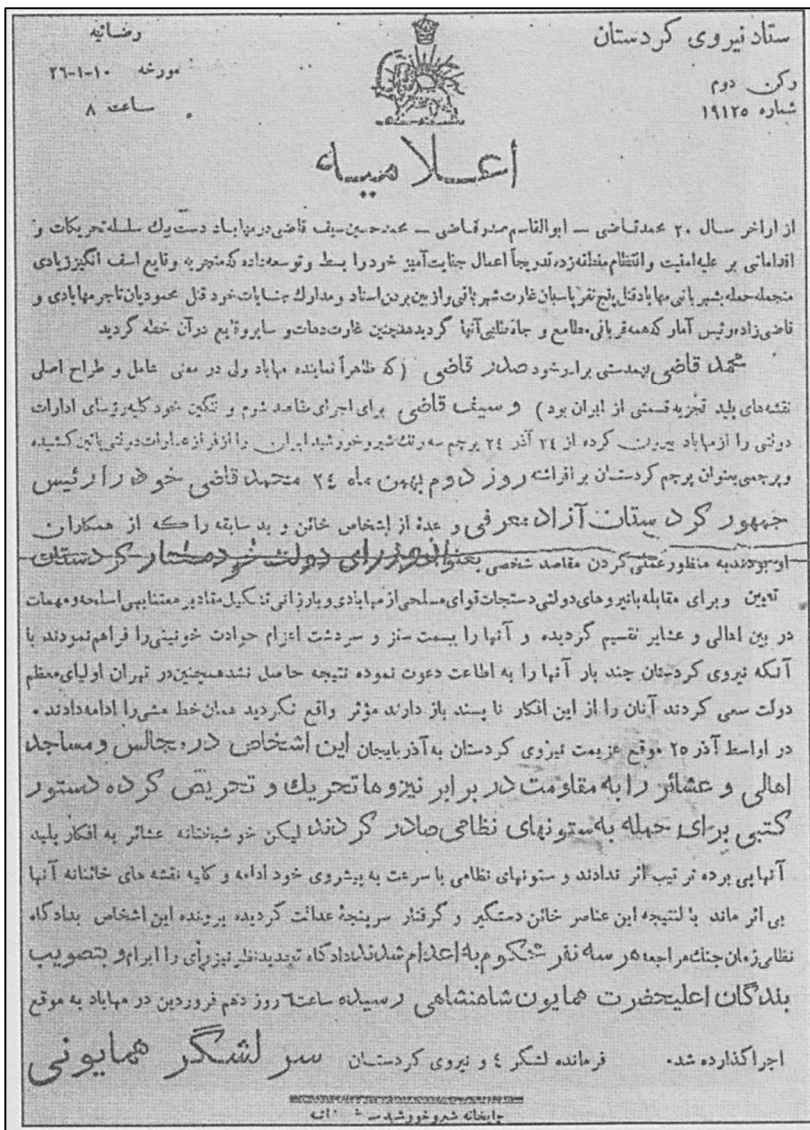 ستاد نیروی کردستان
رکن دوم
شماره ۱۹۱۲۵
رضائیه
مورخه ۱۰-۱-۲۶
ساعت ۸
اعلامیه
از اواخر سال ۲۰ محمد قاضی – ابوالقاسم صدر قاضی – محمد حسین سیف قاضی در مهاباد دست بیک سلسله تحریکات و
اقداماتی بر علیه امنیت و انتظام منطقه زده تدریجاً اعمال جنایت آمیز خود را بسط و توسعه داده که منجر به وقایع اسف انگیز زیادی
منجمله حمله بشهربانی مهاباد قتل پنج نفر پاسبان غارت شهربانی و از بین بردن اسناد و مدارک جنایات خود قتل محمودیان تاجر مهابادی و
قاضی زاده رئیس آمار که همه قربانی مطامع و جاه طلبی آنها گردید همچنین غارت دهات و سایر وقایع در آن خطه گردید
محمد قاضی بهمدستی برادر خود صدر قاضی (که ظاهراً نماینده مهاباد ولی در معنی عامل و طراح اصلی
نقشه‌های پلید تجزیه قسمتی از ایران بود) و سیف قاضی برای اجرای مقاصد شوم و ننگین خود کلیه رؤسای ادارات
دولتی را از مهاباد بیرون کرده از ۲۴ آذر ۲۴ پرچم سه رنگ شیر و خورشید ایران را از فراز عمارات دولتی پائین کشیده
و پرچمی بعنوان پرچم کردستان بر افراشته روز دوم بهمن ماه ۲۴ محمد قاضی خود را رئیس
جمهور کردستان آزاد معرفی و عدهٔ از اشخاص خائن و بد سابقه را که از همکاران
او بودند به منظور عملی کردن مقاصد شخصی بعنوان وزرای دولت خودمختار کردستان
تعیین و برای مقابله با نیروهای دولتی دستجات قوای مسلحی از مهابادی و بارزانی تشکیل مقادیر معتنابهی اسلحه و مهمات
در بین اهالی و عشایر تقسیم گردیده و آنها را بسمت سقز و سردشت اعزام حوادث خونینی را فراهم نمودند با
آنکه نیروی کردستان چند بار آنها را به اطاعت دعوت نموده نتیجه حاصل نشد همچنین در تهران اولیای معظم
دولت سعی کردند آنان را از این افکار ناپسند باز دارند مؤثر واقع نگردید همان خط مشی را ادامه دادند.
در اواسط آذر ۲۵ موقع عزیمت نیروی کردستان به آذربایجان این اشخاص در مجالس و مساجد
اهالی و عشائر را به مقاومت در برابر نیروها تحریک و تحریص کرده دستور
کتبی برای حمله به ستونهای نظامی صادر کردند لیکن خوشبختانه عشائر به افکار پلید
آنها پی برده ترتیب اثر ندادند و ستونهای نظامی با سرعت به پیشروی خود ادامه و کلیه نقشه های خائنانه آنها
بی اثر ماند بالنتیجه این عناصر خائن دستگیر و گرفتار سرپنجهٔ عدالت گردیده پرونده این اشخاص بدادگاه
نظامی زمان جنگ مراجعه هر سه نفر محکوم به اعدام شدند دادگاه تجدید نظر نیز رأی را ابرام و بتصویب
بندگان اعلیحضرت همایون شاهنشاهی رسیده ساعت ۶ روز دهم فروردین در مهاباد به موقع
اجرا گذارده شد. فرمانده لشگر ۴ و نیروی کردستان سر لشگر همایونی
چاپخانه شیر و خورشید